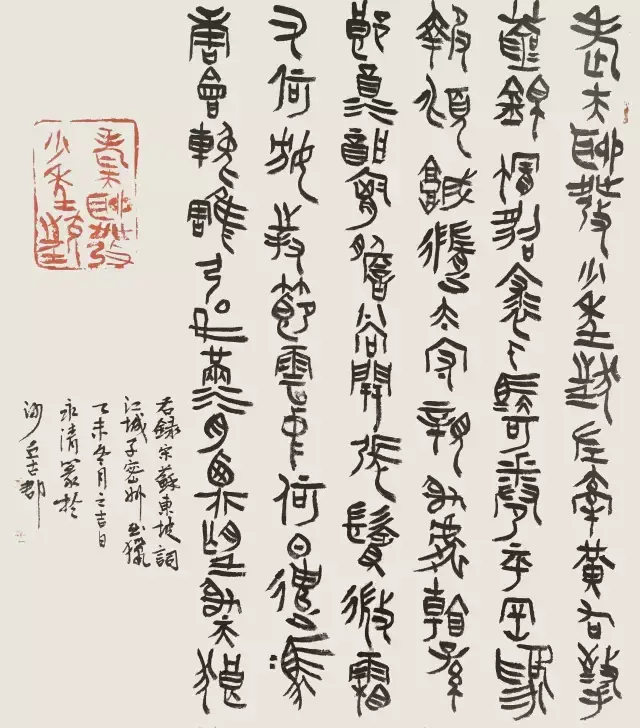 老夫聊發少年狂左牽黃右擎
蒼錦帽貂裘千騎卷平岡為
報傾城隨太守親射虎看孫
郎酒酣胸膽尚開張鬢微霜
又何妨持節雲中何日遣馮
唐會挽雕弓如滿月西北望射天狼
右錄宋蘇東坡詞
江城子密州出獵
乙未冬月之吉日
永清篆於
沙丘古郡
老夫聊發
少年狂